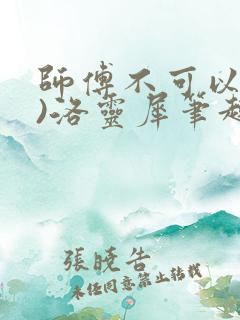 師傅不可以
)洛靈犀筆趣
張曉告
未任同意禁止轉載